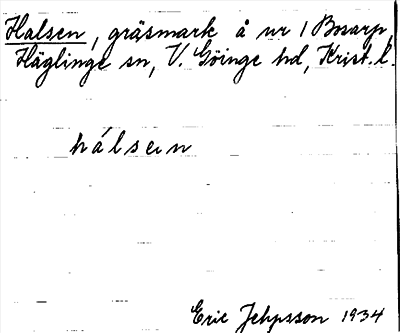 Halsen, gräsmark å nr 1 Bosarp,
Häglinge sn, V. Göinge hd, Krist. l.
hálsen
Eric Jeppsson 1934